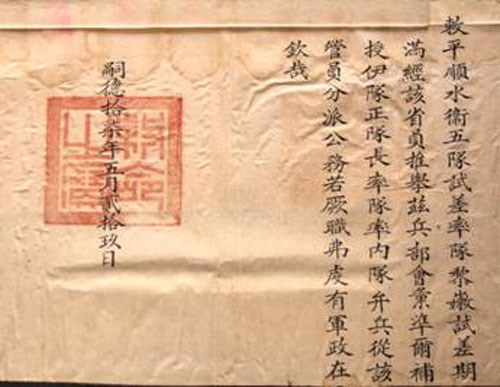 敕平順水衛五隊試差率隊黎嫩試差期
滿經該省員推舉茲兵部會彙準爾補
授伊隊正隊長率隊率內隊弁兵從該
管員分派公務若厥職弗虔有軍政在
欽哉
嗣德拾柒年五月貳拾玖日
敕命之寶